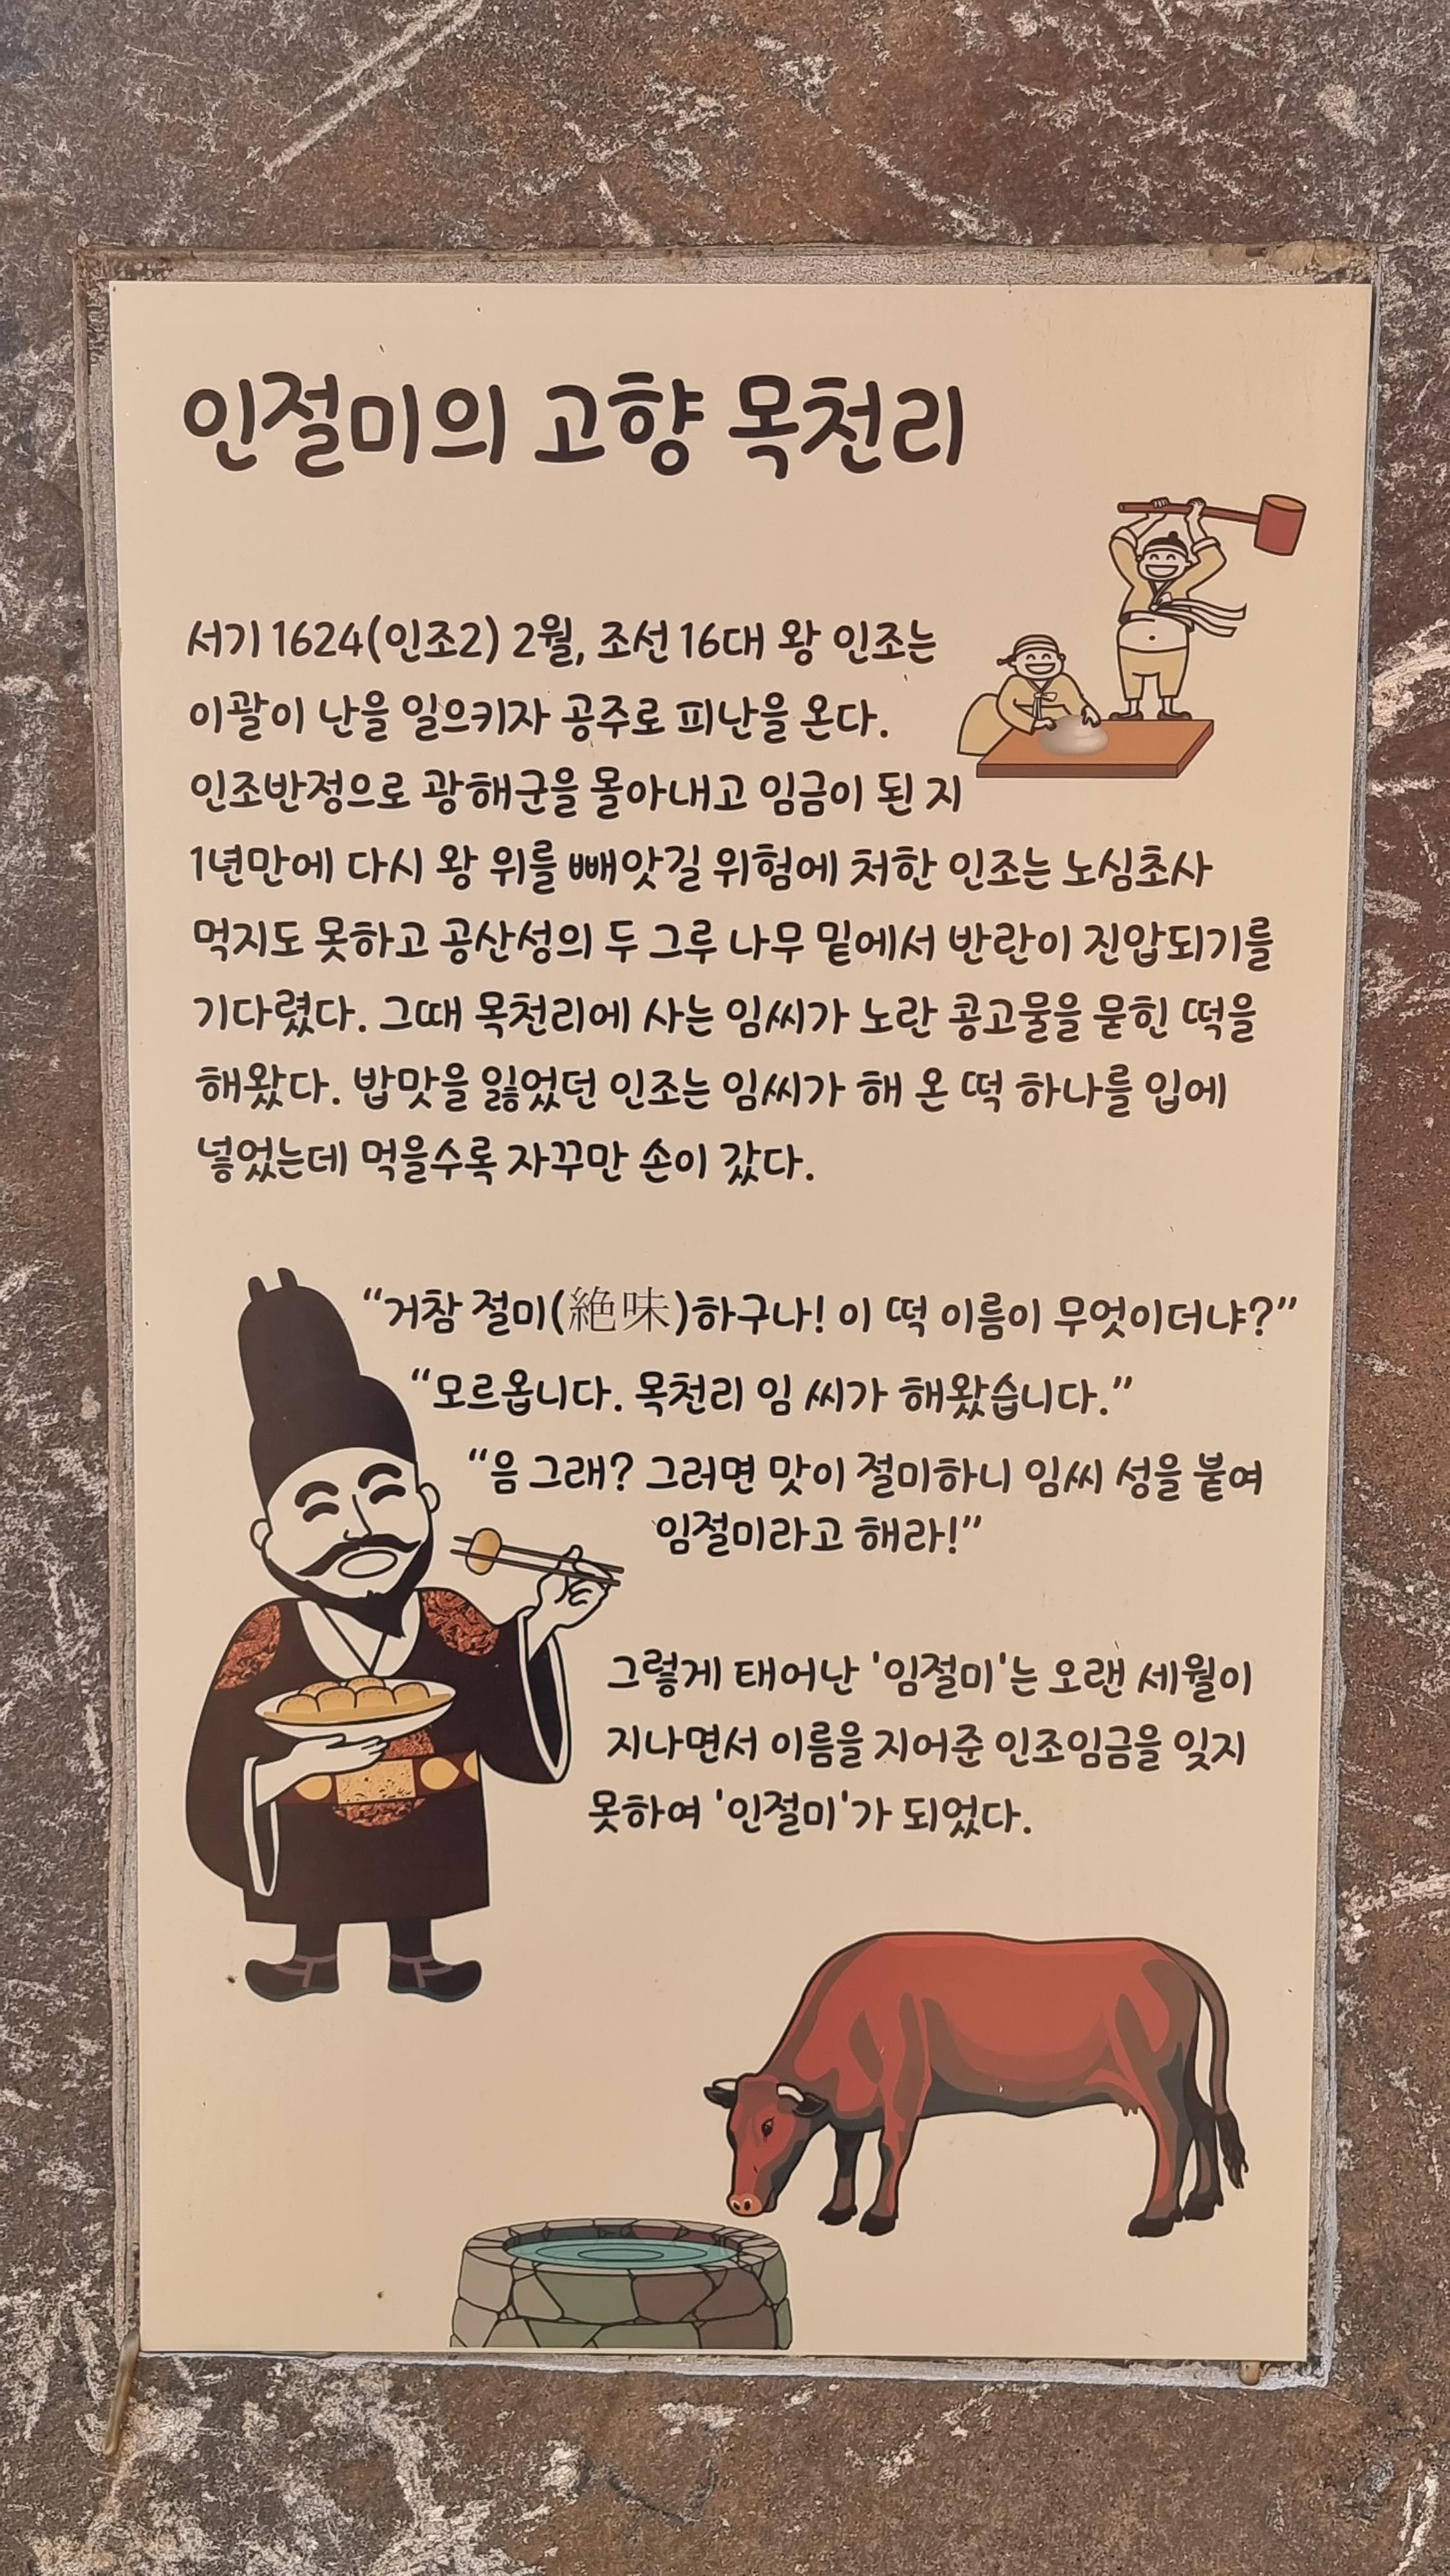 인절미의 고향 목천리
서기 1624(인조2) 2월, 조선 16대 왕 인조는
이괄이 난을 일으키자 공주로 피난을 온다.
인조반정으로 광해군을 몰아내고 임금이 된 지
1년만에 다시 왕 위를 빼앗길 위험에 처한 인조는 노심초사
먹지도 못하고 공산성의 두 그루 나무 밑에서 반란이 진압되기를
기다렸다. 그때 목천리에 사는 임씨가 노란 콩고물을 묻힌 떡을
해왔다. 밥맛을 잃었던 인조는 임씨가 해 온 떡 하나를 입에
넣었는데 먹을수록 자꾸만 손이 갔다.
“거참 절미(絶味)하구나! 이 떡 이름이 무엇이더냐?”
“모르옵니다. 목천리 임 씨가 해왔습니다.”
“음 그래? 그러면 맛이 절미하니 임씨 성을 붙여
임절미라고 해라!”
그렇게 태어난 '임절미'는 오랜 세월이
지나면서 이름을 지어준 인조임금을 잊지
못하여 '인절미'가 되었다.